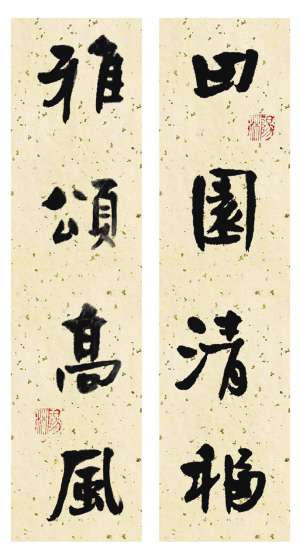 田園清福
雅頌高風